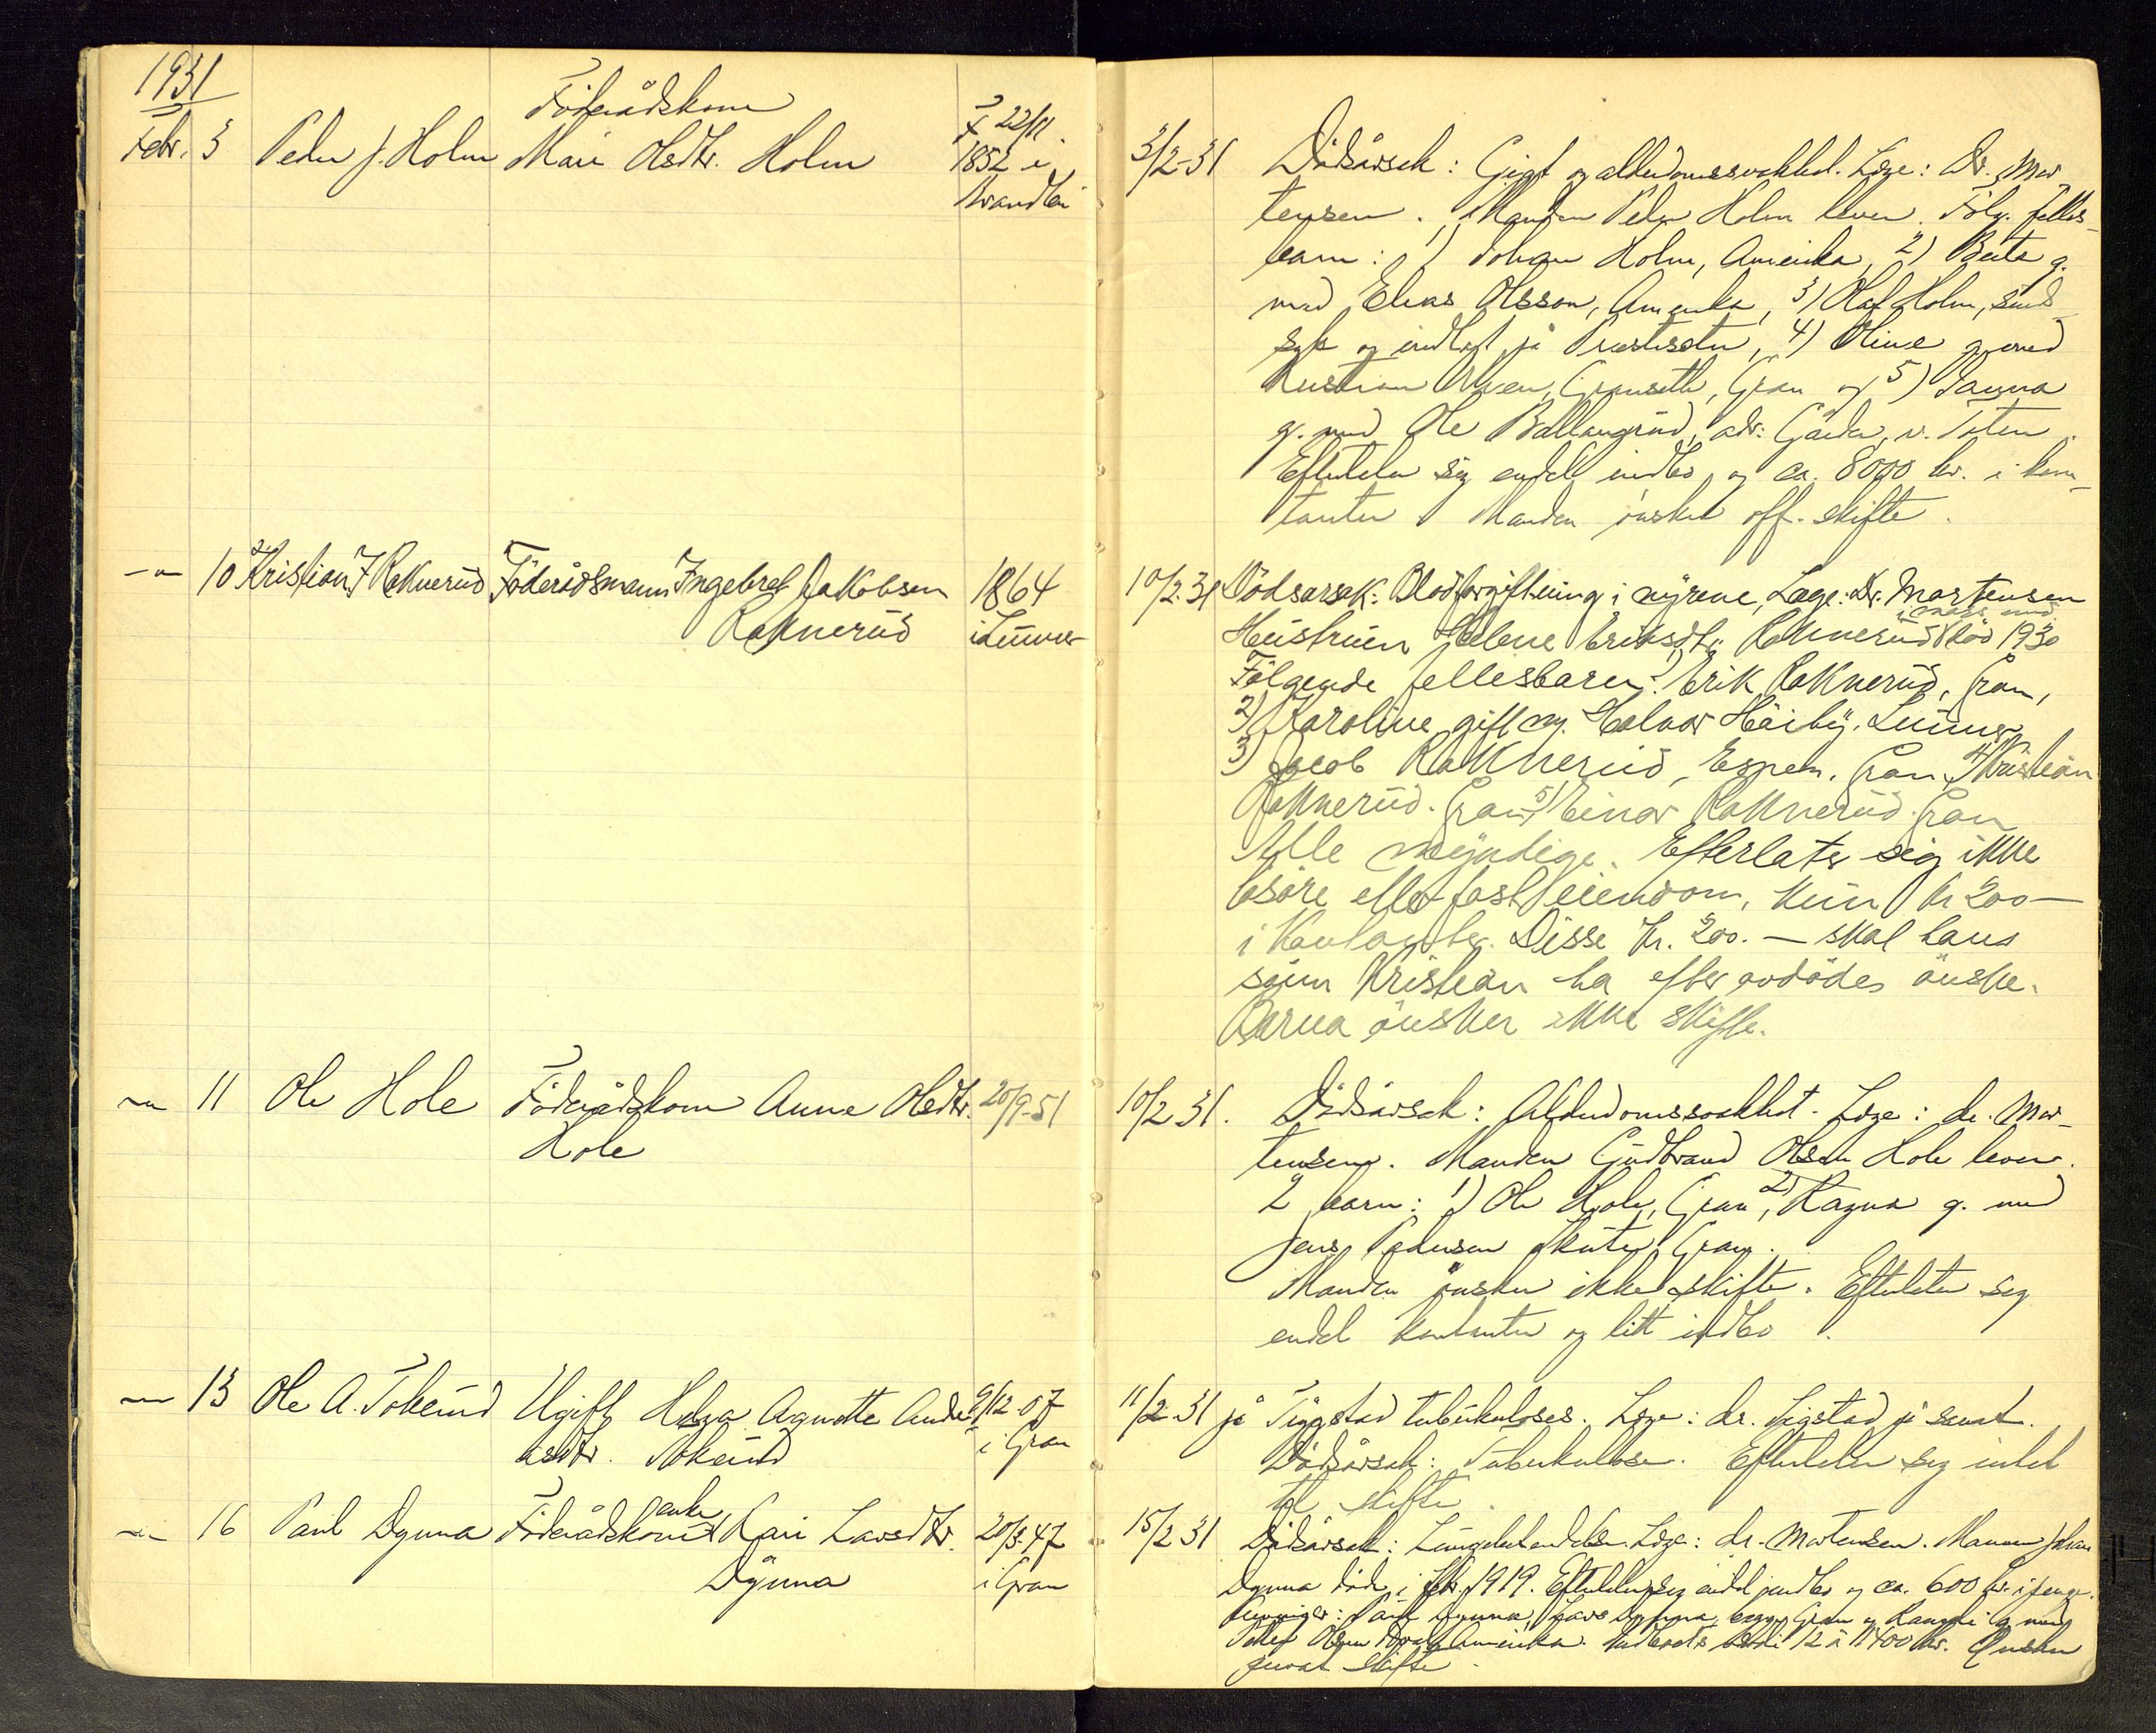 1931
Föderådskone
Febr. 3 Peder J. Holm Mari Olsdtr. Holm
F 22/11
1852 i
Brandbu
3/2-31 Dødsårsak: Gigt og alderdomssvakhet. Læge: Dr. Mar-
tensen. Manden Peder Holm lever. Følg. felles-
barn: 1) Johan Holm, Amerika, 2) Berta g.
med Elias Olsson, Amerika, 3) Olaf Holm, sinds-
syk og indlagt på Presteseter, 4) Oline g. med
Kristian Gran og 5) Ragna
g. med Ole Ballangrud, adr: v. Toten.
Efterlater sig endel indbo og ca. 8000 kr. i kon-
tanter. Manden ønsker off. skifte.
-"- 10 Kristian J Raknerud Föderådsmann Ingebret Jakobsen
Raknerud
1864
i Lunner
10/2.31 Dødsarsak: Blodforgiftning i nyrene, Læge: Dr. Martensen
Hustruen Helene Eriksdtr Raknerud död i mars mnd 1930
Fölgende fellesbarn: 1) Erik Raknerud, Gran,
2) Karoline gift m. Halvor Höiby. Lunner
3) Jacob Raknerud, Espern. Gran, 4) Kristian
Raknerud. Gran, 5) Einar Raknerud. Gran
Alle myndige. Efterlater sig ikke
lösöre eller fast eiendom, kun kr 200 —
i kontanter. Disse kr. 200. — skal hans
sönn Kristian ha efter avdödes önske.
Barna önsker ikke skifte.
-"- 11 Ole Hole Föderådskone Anne Olsdtr.
Hole
20/9-51
10/2 31. Dødsårsak: Alderdomssvakhet. Læge: dr. Mar-
tensen. Manden Gudbrand Olsen Hole lever.
2 barn: 1) Ole Hole, Gran, 2) Ragna g. med
Jens Pedersen Gran.
Manden ønsker ikke skifte. Efterlater seg
endel kontanter og litt indbo.
-"- 13 Ole A. Tokerud Ugift Helga Agnette Ande-
asdtr. Tokerud
9/12-07
i Gran
11/2-31 på tuberkuloses. Læge: dr. på sanat.
Dødsårsak: Tuberkulose. Efterlater seg intet
til skifte.
-"- 16 Paul Dynna Föderådskone enke Kari Larsdtr.
Dynna
20/3-47
i Gran
15/2 31 Dødsårsak: Lungebetendelse. Læge: dr. Martensen. Mannen Johan
Dynna død i febr. 1919. Efterlater seg endel indbo og ca. 600 kr. i penge.
Arvinger: Paul Dynna, Lars Dynna, begge Gran og g. med
Olsen Amerika. Indboets verdi 12 à 1400 kr. Ønsker
privat skifte.